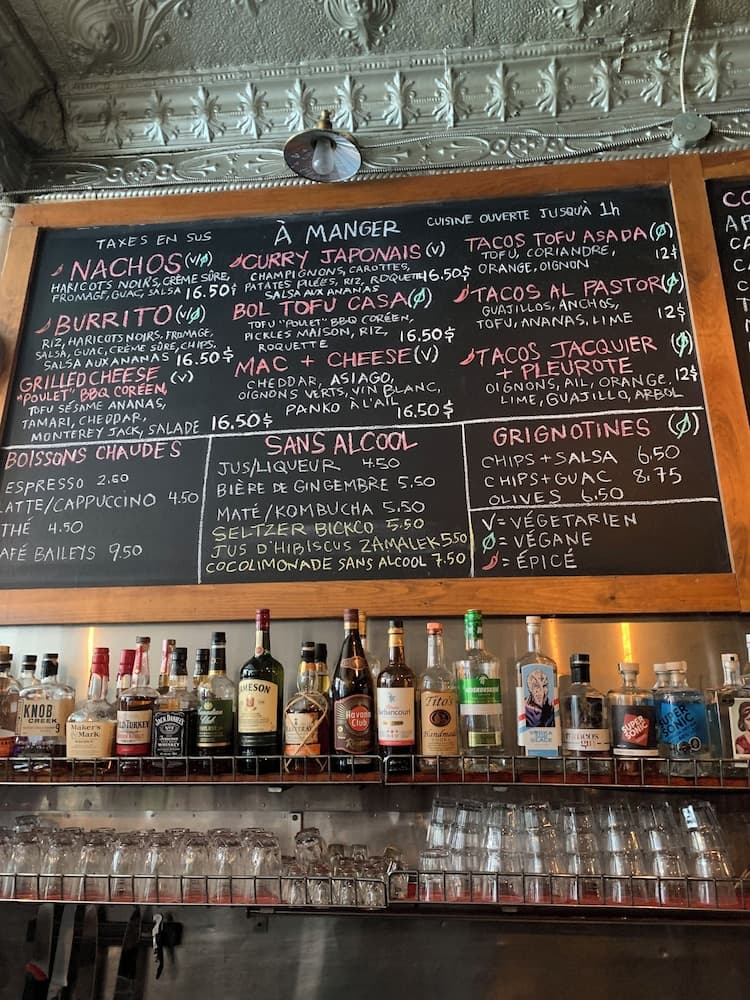 TAXES EN SUS
À MANGER
CUISINE OUVERTE JUSQU'À 1h
NACHOS (V/Ø)
HARICOTS NOIRS, CRÈME SÛRE,
FROMAGE, GUAC, SALSA 16.50$
BURRITO (V/Ø)
RIZ, HARICOTS NOIRS, FROMAGE,
SALSA, GUAC, CRÈME SÛRE, CHIPS,
SALSA AUX ANANAS 16.50$
GRILLED CHEESE (V)
"POULET" BBQ CORÉEN,
TOFU SÉSAME ANANAS,
TAMARI, CHEDDAR,
MONTEREY JACK, SALADE 16.50$
CURRY JAPONAIS (V)
CHAMPIGNONS, CAROTTES,
PATATES PILÉES, RIZ, ROQUETTE 16.50$
SALSA AUX ANANAS
BOL TOFU CASA (Ø)
TOFU "POULET" BBQ CORÉEN,
PICKLES MAISON, RIZ,
ROQUETTE 16.50$
MAC + CHEESE (V)
CHEDDAR, ASIAGO,
OIGNONS VERTS, VIN BLANC,
PANKO À L'AIL 16.50$
TACOS TOFU ASADA (Ø)
TOFU, CORIANDRE,
ORANGE, OIGNON 12$
TACOS AL PASTOR (Ø)
GUAJILLOS, ANCHOS,
TOFU, ANANAS, LIME 12$
TACOS JACQUIER
+ PLEUROTE (Ø)
OIGNONS, AIL, ORANGE, 12$
LIME, GUAJILLO, ARBOL
BOISSONS CHAUDES
ESPRESSO 2.60
LATTE/CAPPUCCINO 4.50
THÉ 4.50
CAFÉ BAILEYS 9.50
SANS ALCOOL
JUS/LIQUEUR 4.50
BIÈRE DE GINGEMBRE 5.50
MATÉ/KOMBUCHA 5.50
SELTZER BICKCO 5.50
JUS D'HIBISCUS ZAMALEK 5.50
COCOLIMONADE SANS ALCOOL 7.50
GRIGNOTINES (Ø)
CHIPS + SALSA 6.50
CHIPS + GUAC 8.75
OLIVES 6.50
V = VÉGÉTARIEN
Ø = VÉGANE
= ÉPICÉ
KNOB
CREEK
9
Maker's
Mark
WILD TURKEY
JACK DANIEL'S
JAMESON
Havana
Club
Barbancourt
Tito's
Handmade
SUPER
SONIC
SUPER
SONIC